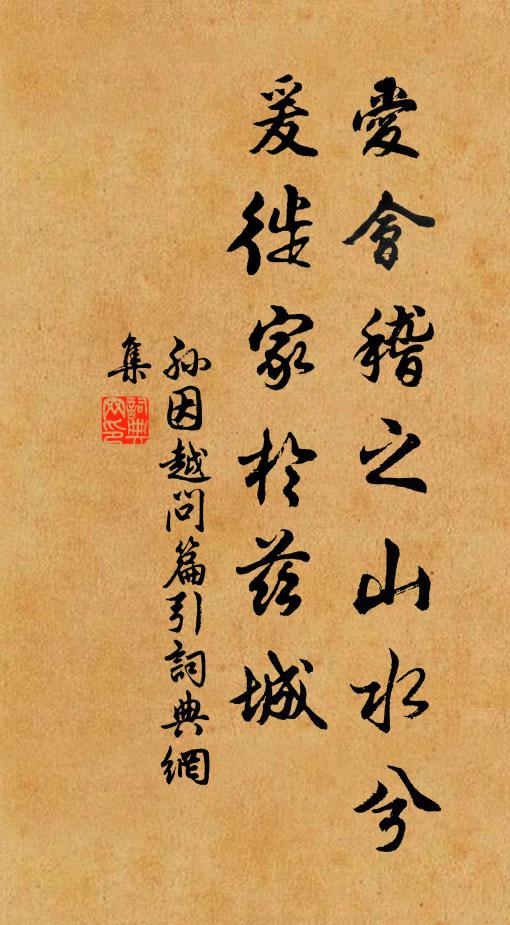 愛會稽之山水兮
爰徙家於茲城
孫因越問篇引詞典網
集
詞典
网印